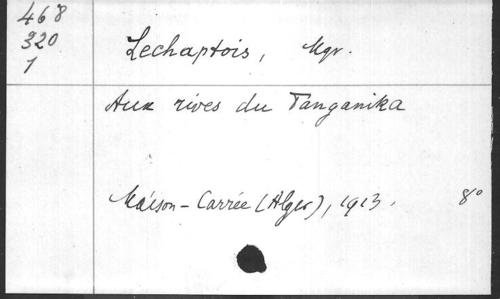 468
320
1
Lechaptois, Mgr.
Aux rives du Tanganika
Maison-Carrée (Alger), 1913. 8°